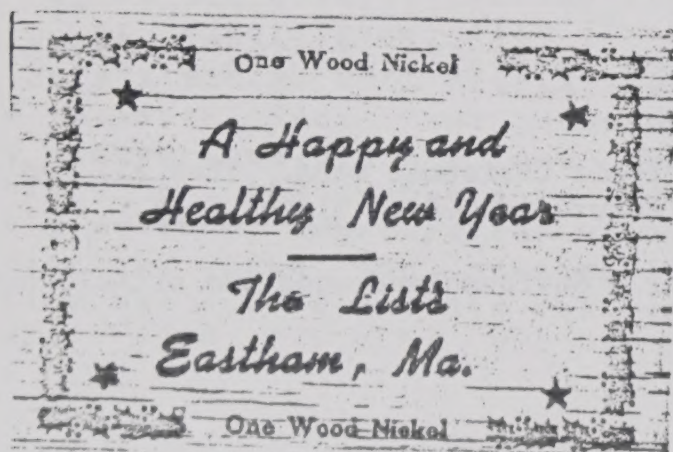 One Wood Nickel
A Happy and
Healthy New Year
The Lists
Eastham, Ma.
One Wood Nickel